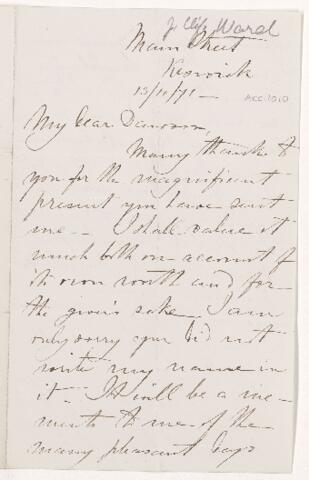 J Clifton Ward
Main Street
Keswick
13/10/71 —
ACC.1010
My dear Dawson,
Many thanks to
you for the magnificent
present you have sent
me — I shall value it
much both on account of
its own worth and for
the giver's sake. I am
only sorry you did not
write my name in
it — It will be a me-
mento to me of the
many pleasant days